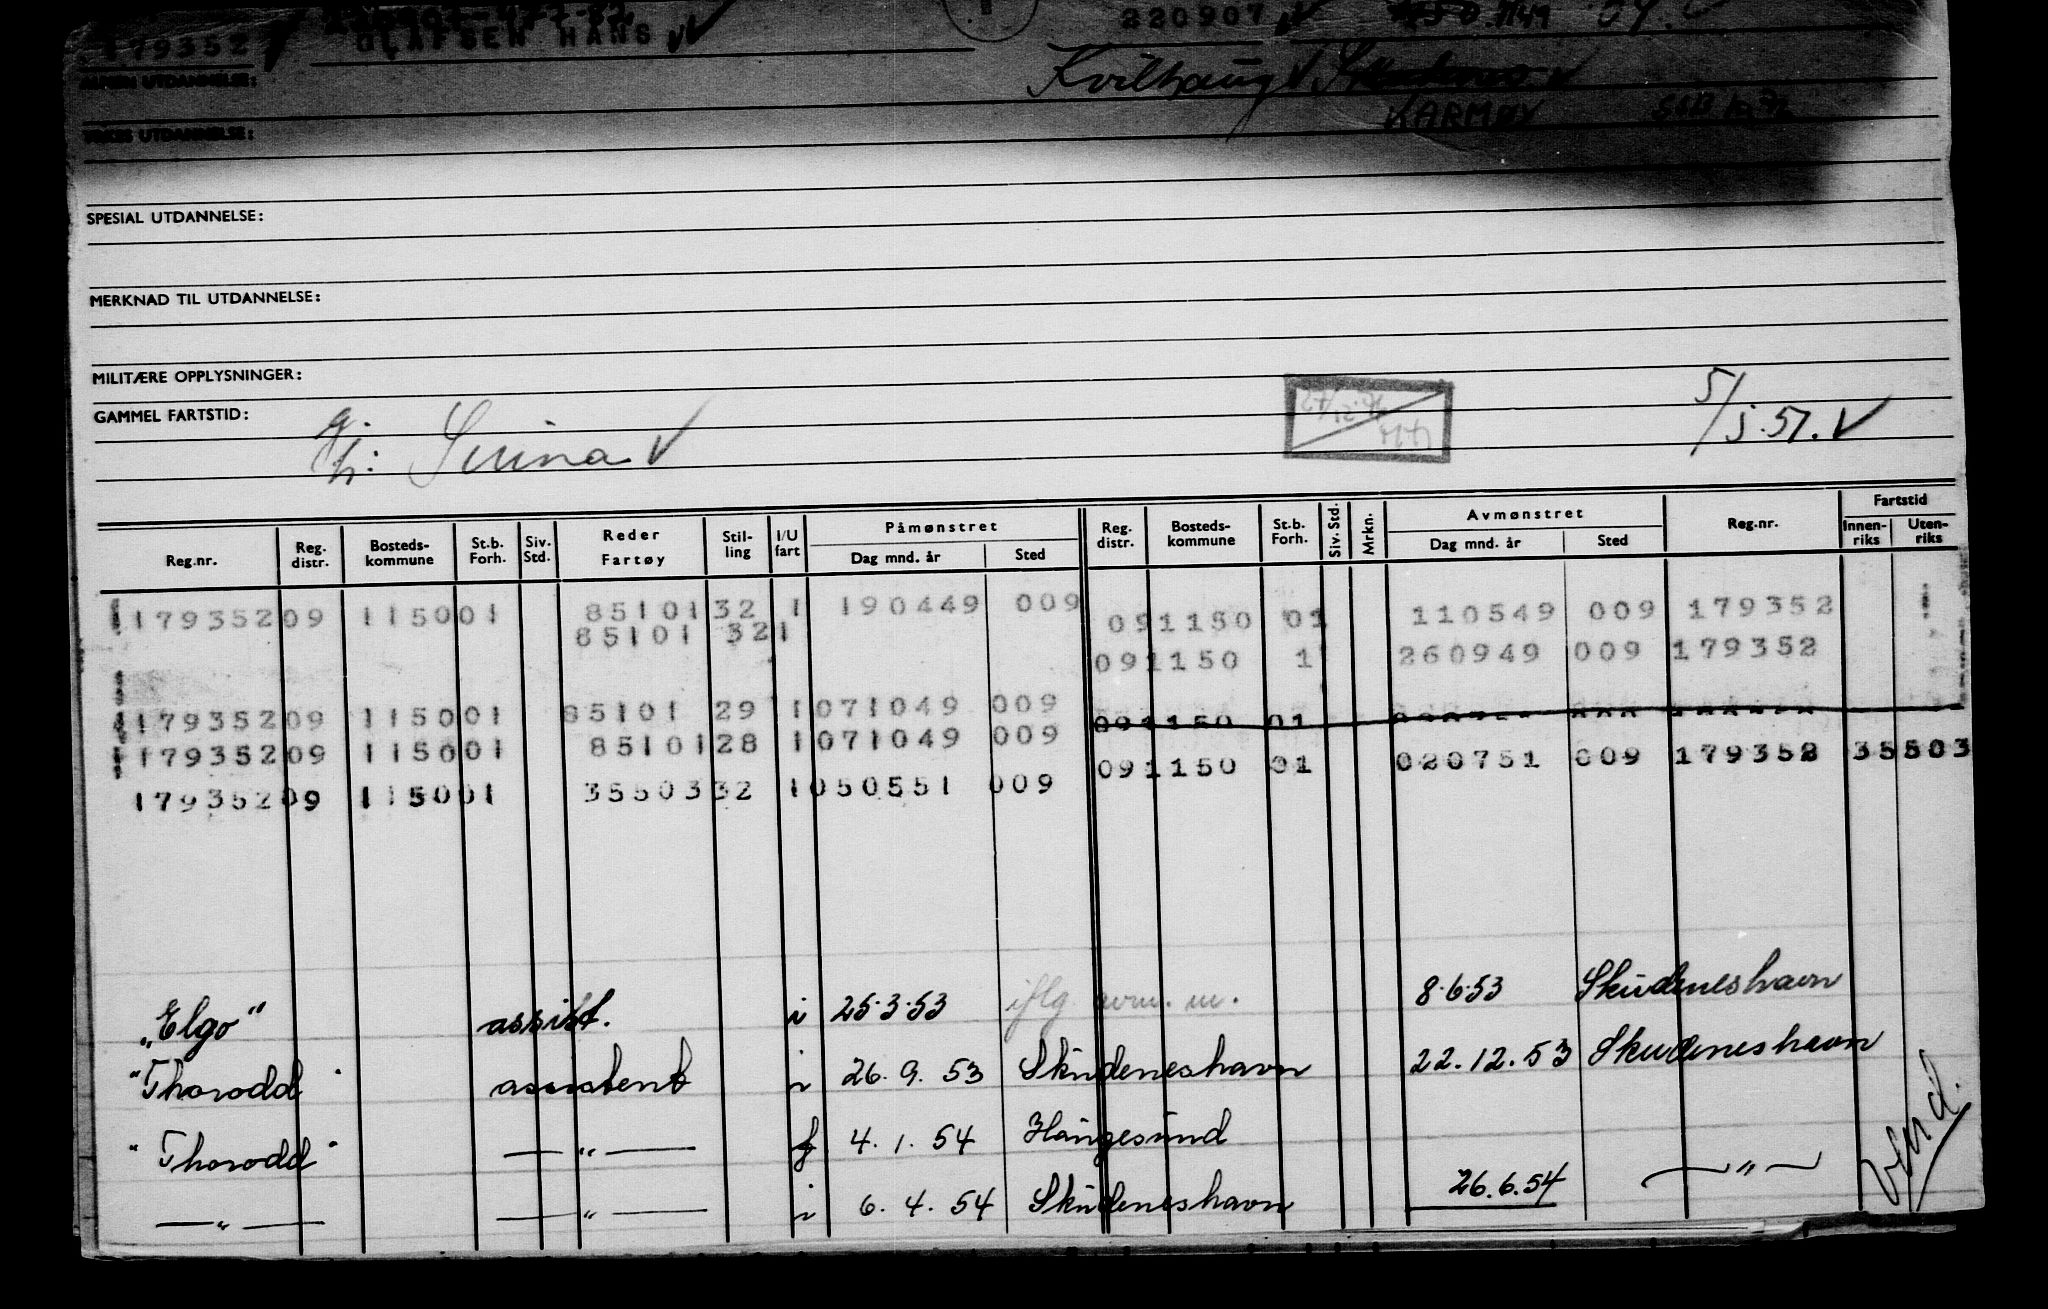 179352 OLAFSEN HANS 220907
ALMEN UTDANNELSE: Kvilhaug
YRKES UTDANNELSE: KARMØY
SPESIAL UTDANNELSE:
MERKNAD TIL UTDANNELSE:
MILITÆRE OPPLYSNINGER:
GAMMEL FARTSTID:
5/5.51.
Reg.nr. Reg. distr. Bosteds- kommune St.b. Forh. Siv. Std. Reder Fartøy Stil- ling I/U fart Påmønstret Dag mnd. år Sted Reg. distr. Bosteds- kommune St.b. Forh. Siv. Std. Mrkn. Avmønstret Dag mnd. år Sted Reg.nr. Fartstid Innen- riks Uten- riks
179352 09 1150 01 85101 32 1 190449 009 09 1150 01 110549 009 179352
85101 32 1 09 1150 1 260949 009 179352
179352 09 1150 01 85101 29 1 071049 009 09 1150 01
179352 09 1150 01 85101 28 1 071049 009 09 1150 01 020751 009 179352 35503
179352 09 1150 01 35503 32 1 050551 009
„Elgo" assist. i 25.3.53 iflg. avm. m. 8.6.53 Skudeneshavn
"Thorodd" assistent i 26.9.53 Skudeneshavn 22.12.53 Skudeneshavn
"Thorodd" — " — f 4.1.54 Haugesund
— " — — " — i 6.4.54 Skudeneshavn 26.6.54 — " —